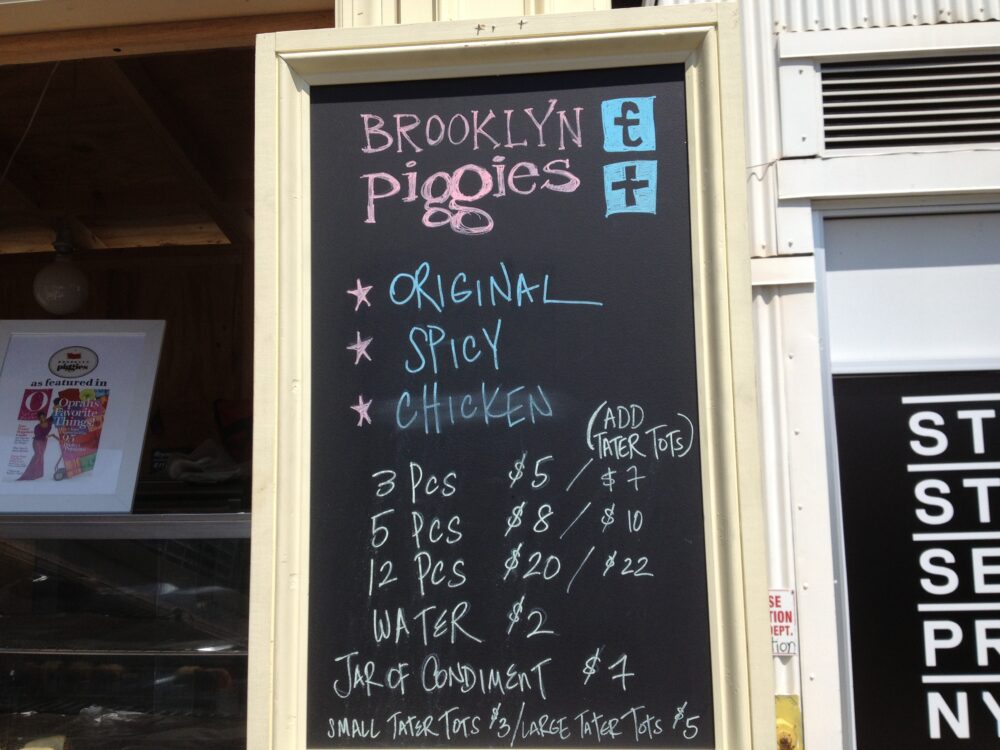 BROOKLYN f
piggies t
ORIGINAL
SPICY
CHICKEN
(ADD
TATER TOTS)
3 Pcs $5 / $7
5 Pcs $8 / $10
12 Pcs $20 / $22
WATER $2
JAR OF CONDIMENT $7
SMALL TATER TOTS $3/LARGE TATER TOTS $5
piggies
as featured in
O
Oprah's
Favorite
Things!
SE
TION
DEPT.
tion
ST
ST
SE
PR
NY